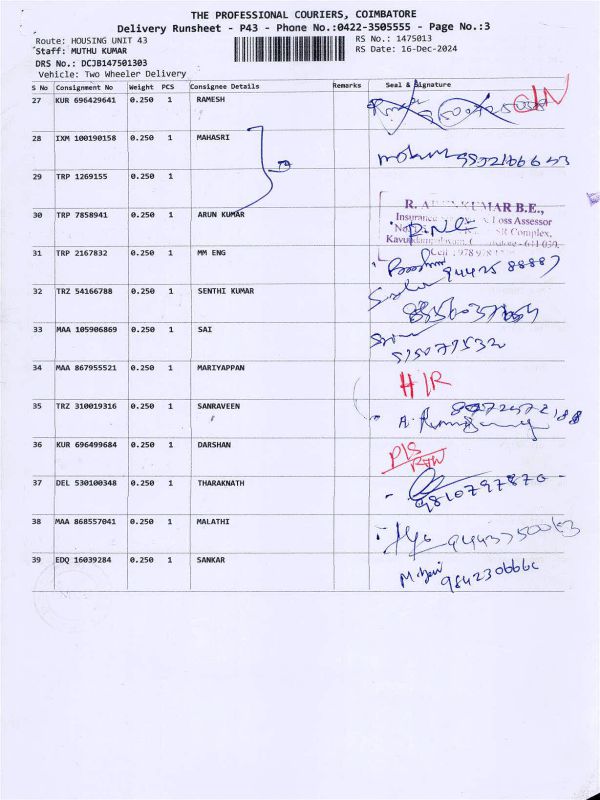 THE PROFESSIONAL COURIERS, COIMBATORE
Delivery Runsheet - P43 - Phone No.:0422-3505555 - Page No.:3
Route: HOUSING UNIT 43 RS No.: 1475013
Staff: MUTHU KUMAR RS Date: 16-Dec-2024
DRS No.: DCJB147501303
Vehicle: Two Wheeler Delivery
S No Consignment No Weight PCS Consignee Details Remarks Seal & Signature
27 KUR 696429641 0.250 1 RAMESH
28 IXM 100190158 0.250 1 MAHASRI
29 TRP 1269155 0.250 1
30 TRP 7858941 0.250 1 ARUN KUMAR
KUMAR B.E.,
Loss Assessor
SR Complex,
31 TRP 2167832 0.250 1 MM ENG
32 TRZ 54166788 0.250 1 SENTHI KUMAR
33 MAA 105906869 0.250 1 SAI
34 MAA 867955521 0.250 1 MARIYAPPAN H/R
35 TRZ 310019316 0.250 1 SANRAVEEN
36 KUR 696499684 0.250 1 DARSHAN
37 DEL 530100348 1 0.250 THARAKNATH 9810797870
38 MAA 868557041 0.250 1 MALATHI
39 EDQ 16039284 0.250 1 SANKAR